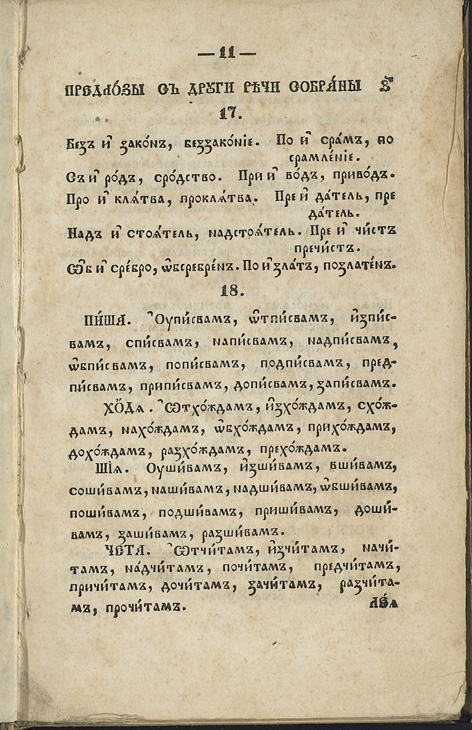 — 11 —
ПРЕДЛО́ЗЫ СЪ ДРУГИ РѢЧИ СОБРА́НЫ
17.
Безъ и҆ зако́нъ, беззако́нїе. По и҆ сра́мъ, по
срамле́нїе.
Съ и҆ ро́дъ, сро́дство. При и҆ во́дъ, приво́дъ.
Про и҆ кла́тва, прокла́тва. Пре и҆ да́тель, пре
да́тель.
Надъ и҆ стоѧ́тель, надстоѧ́тель. Пре и҆ чи́стъ
пречи́стъ.
Ѡб и҆ сре́бро, ѡбсребре́нъ. По и҆ зла́тъ, позлате́нъ.
18.
ПИ́ША. Оупи́свамъ, ѿпи́свамъ, и҆зпи́с-
вамъ, спи́свамъ, напи́свамъ, надпи́свамъ,
ѡбпи́свамъ, попи́свамъ, подпи́свамъ, пред-
пи́свамъ, припи́свамъ, допи́свамъ, запи́свамъ.
ХО́ДѦ. Ѿхо́ждамъ, и҆зхо́ждамъ, схо́ж-
дамъ, нахо́ждамъ, ѡбхо́ждамъ, прихо́ждамъ,
дохо́ждамъ, разхо́ждамъ, прехо́ждамъ.
ШІѦ. Оуши́вамъ, и҆зши́вамъ, вши́вамъ,
соши́вамъ, наши́вамъ, надши́вамъ, ѡбши́вамъ,
поши́вамъ, подши́вамъ, приши́вамъ, доши́-
вамъ, заши́вамъ, разши́вамъ.
ЧЕТА. Ѿчи́тамъ, и҆зчи́тамъ, начи́-
тамъ, надчи́тамъ, почи́тамъ, предчи́тамъ,
причи́тамъ, дочи́тамъ, зачи́тамъ, разчи́та-
мъ, прочи́тамъ.